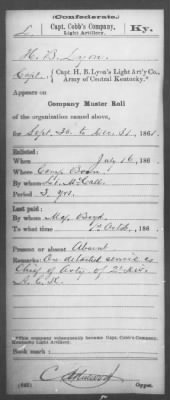 (Confederate.)
L Capt. Cobb's Company, Light Artillery. Ky.
H. B. Lyon
Capt., { Capt. H. B. Lyon's Light Art'y Co., Army of Central Kentucky.*
Appears on
Company Muster Roll
of the organization named above,
for Sept. 30 to Dec. 31, 1861.
Enlisted:
When July 16, 186 .
Where Camp Boon
By whom Lt. McCall
Period 3 yrs.
Last paid:
By whom Maj. Boyd
To what time 1st Octbr, 186 .
Present or absent Absent
Remarks: On detached service as
Chief of Arty of 2d
*This company subsequently became Capt. Cobb's Company, Kentucky Light Artillery.
Book mark:
(642) Copyist.